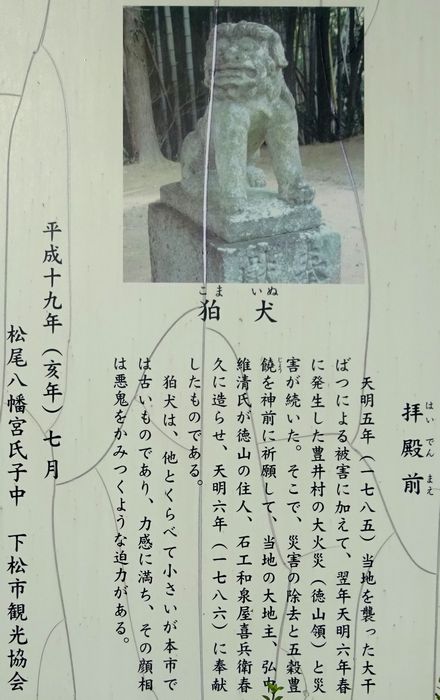 拝殿前
はいでんまえ
狛犬
こまいぬ
天明五年(一七八五)当地を襲った大干
ばつによる被害に加えて、翌年天明六年春
に発生した豊井村の大火災(徳山領)と災
害が続いた。そこで、災害の除去と五穀豊
饒を神前に祈願して、当地の大地主、弘中
じょう
維清氏が徳山の住人、石工和泉屋喜兵衛春
久に造らせ、天明六年(一七八六)に奉献
したものである。
狛犬は、他とくらべて小さいが本市で
は古いものであり、力感に満ち、その顔相
は悪鬼をかみつくような迫力がある。
平成十九年(亥年)七月
松尾八幡宮氏子中 下松市観光協会